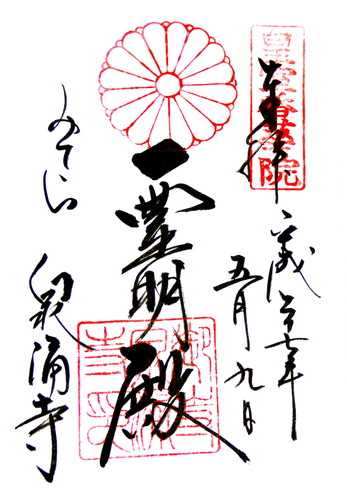 皇室香華院
奉拝
平成二十七年
五月九日
霊明殿
みてら
泉涌寺